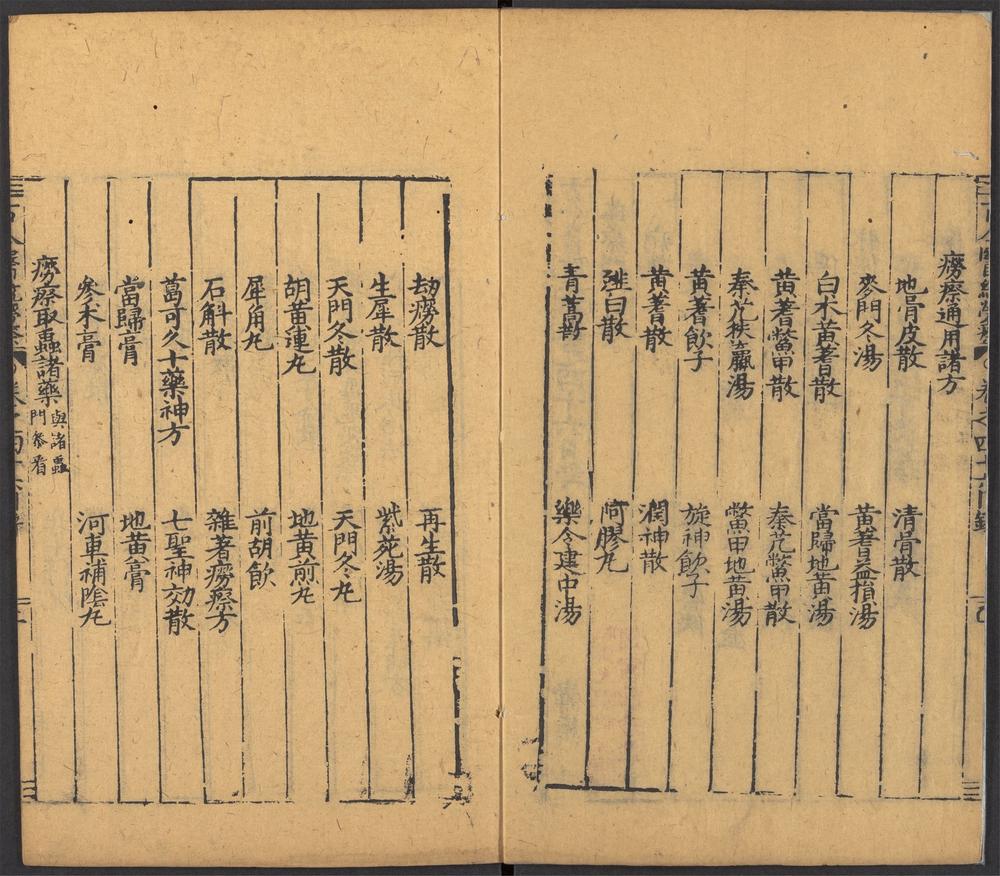 癆瘵通用諸方
地骨皮散 清骨散
麥門冬湯 黃蓍益損湯
白朮黃蓍散 當歸地黃湯
黃蓍鱉甲散 秦艽鱉甲散
秦艽扶羸湯 鱉甲地黃湯
黃蓍飲子 旋神飲子
黃蓍散 潤神散
薤白散 阿膠丸
青蒿散 樂令建中湯
劫癆散 再生散
生犀散 紫菀湯
天門冬散 天門冬丸
胡黃連丸 地黃前丸
犀角丸 前胡飲
石斛散 雜著癆瘵方
葛可久十藥神方 七聖神効散
當歸膏 地黃膏
參朮膏 河車補陰丸
癆瘵取蟲諸藥 與諸蟲門參看